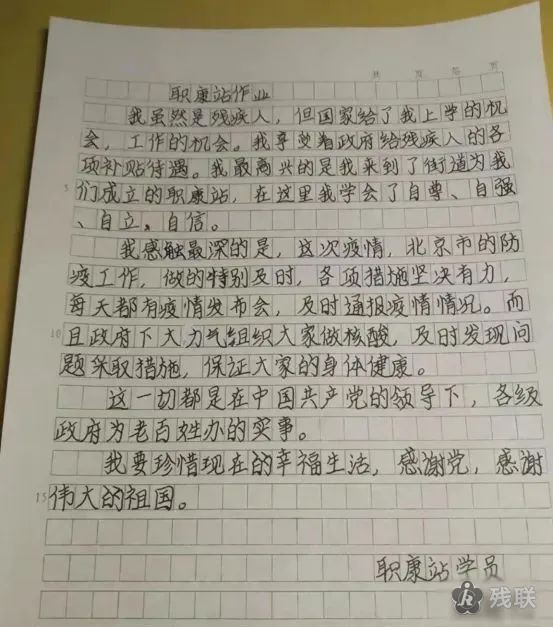 共 页 第 页
职康站作业
我虽然是残疾人，但国家给了我上学的机
会，工作的机会。我享受着政府给残疾人的各
项补贴待遇。我最高兴的是我来到了街道为我
5 们成立的职康站，在这里我学会了自尊、自强
、自立、自信。
我感触最深的是，这次疫情，北京市的防
疫工作，做的特别及时，各项措施坚决有力，
每天都有疫情发布会，及时通报疫情情况。而
10 且政府下大力气组织大家做核酸，及时发现问
题采取措施，保证大家的身体健康。
这一切都是在中国共产党的领导下，各级
政府为老百姓办的实事。
我要珍惜现在的幸福生活，感谢党，感谢
15 伟大的祖国。
职康站学员
残联